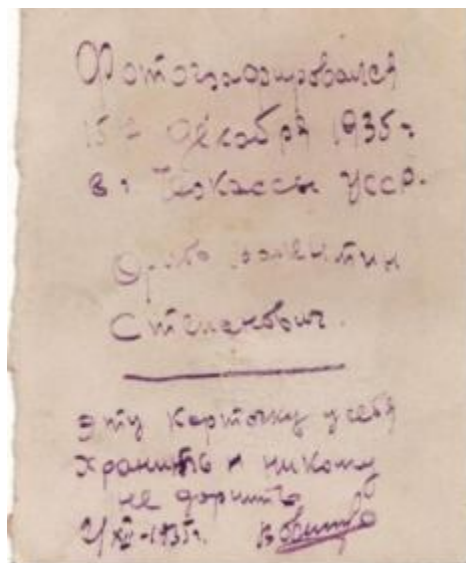 Фотографировался
15го декабря 1935г
в г Черкассы УССР.
Валентин
Степанович.
эту карточку у себя
хранить и никому
не дарить
XII-1935г.